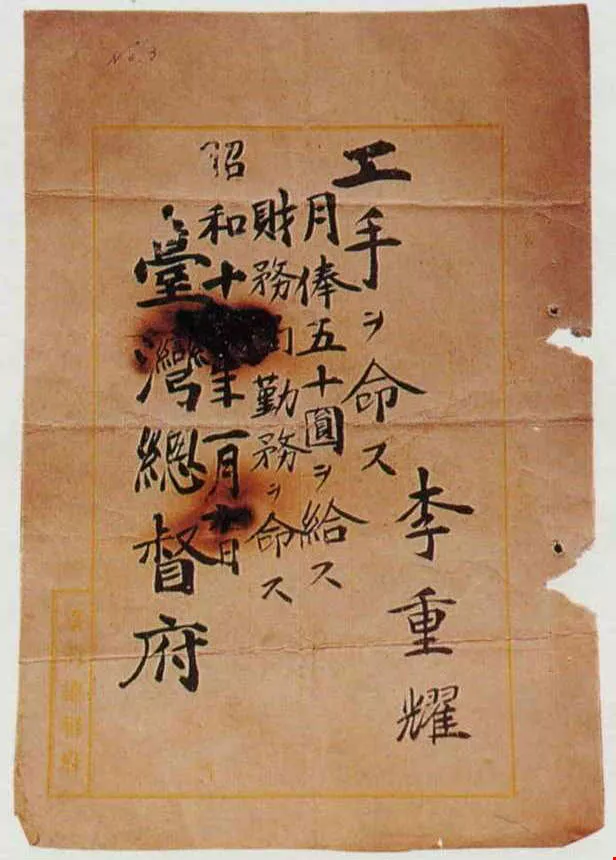 李重耀
工手ヲ命ス
月俸五十圓ヲ給ス
財務局勤務ヲ命ス
昭和十年一月日
臺灣總督府
No. 3